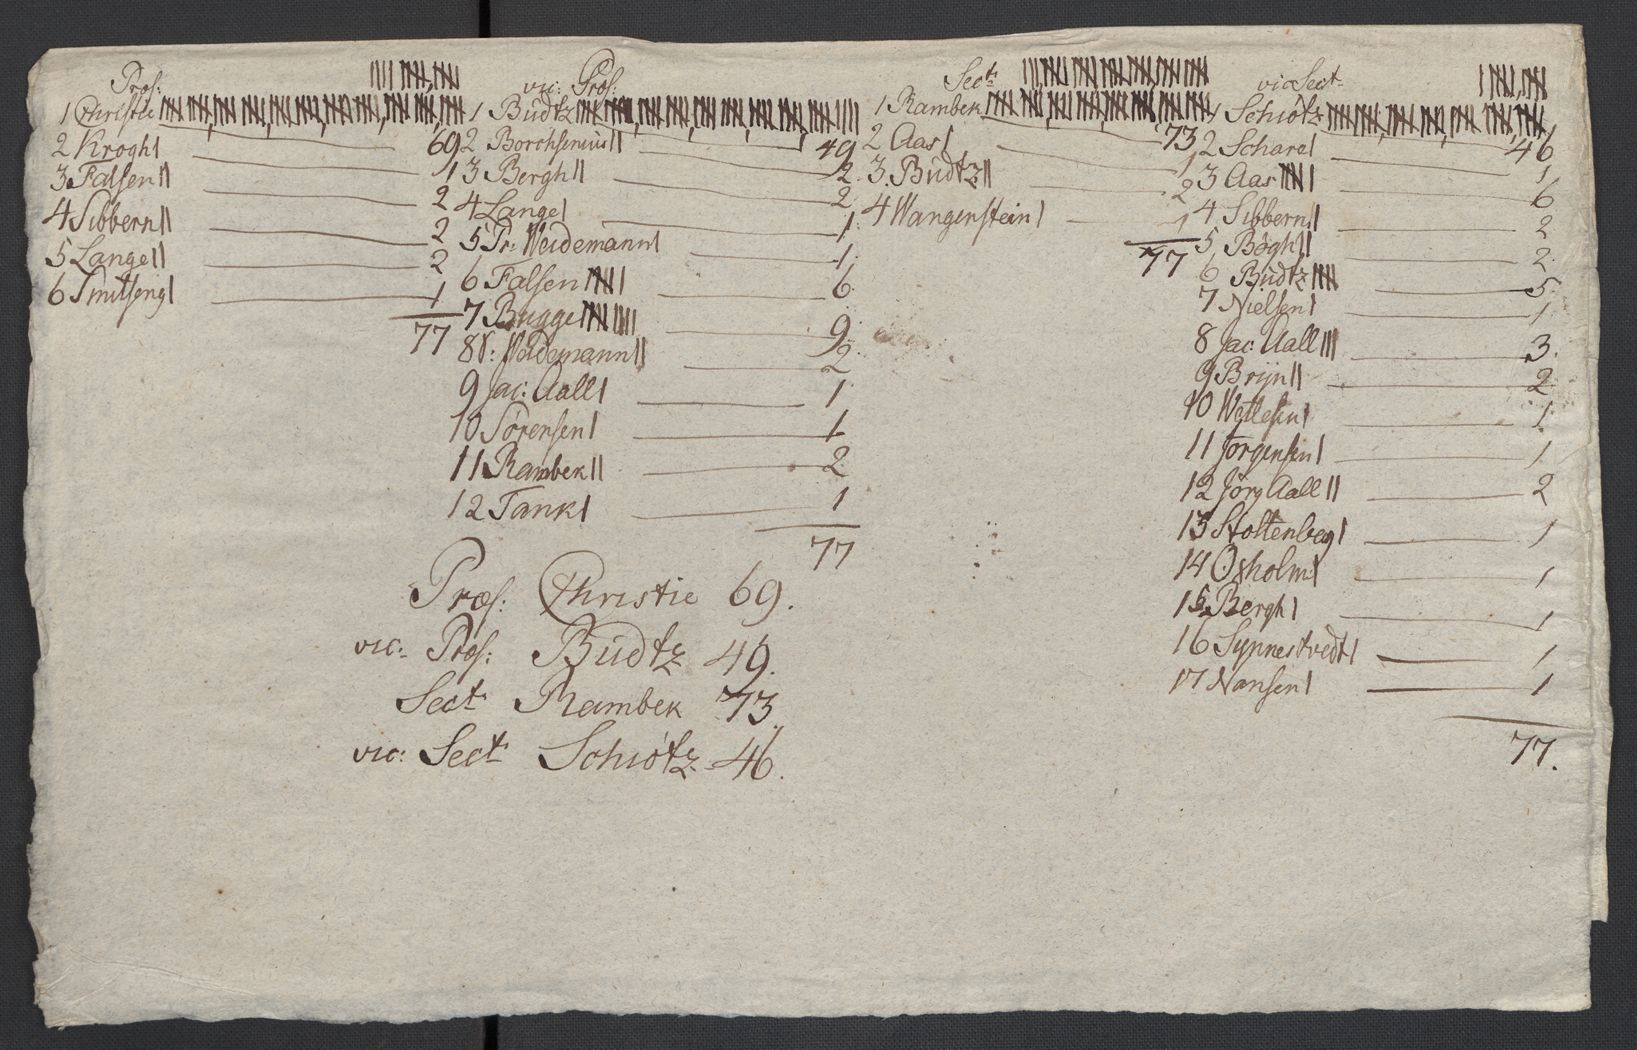 Præs:
1 Christie 69
2 Krogh 1
3 Falsen 2
4 Sibbern 2
5 Lange 2
6 Smitseng 1
77
vic: Præs:
1 Budtz 49
2 Borchsenius 2
3 Bergh 2
4 Lange 1
5 Pr: Weidemann 1
6 Falsen 6
7 Bugge 9
8 V: Weidemann 2
9 Jac: Aall 1
10 Sörensen 1
11 Rambek 2
12 Tank 1
77
Sect:
1 Rambek 73
2 Aas 1
3 Budtz 2
4 Wangenstein 1
77
vic Sect
1 Schiötz 46
2 Schare 1
3 Aas 6
4 Sibbern 2
5 Bøgh 2
6 Budtz 5
7 Nielsen 1
8 Jac: Aall 3
9 Bryn 2
10 Wetlesen 1
11 Jörgensen 1
12 Jörg Aall 2
13 Stoltenberg 1
14 Oxholm 1
15 Bergh 1
16 Synnestvedt 1
17 Nansen 1
77.
Præs: Christie 69.
vic: Præs: Budtz 49.
Sect Rambek 73
vic: Sect Schiötz 46.